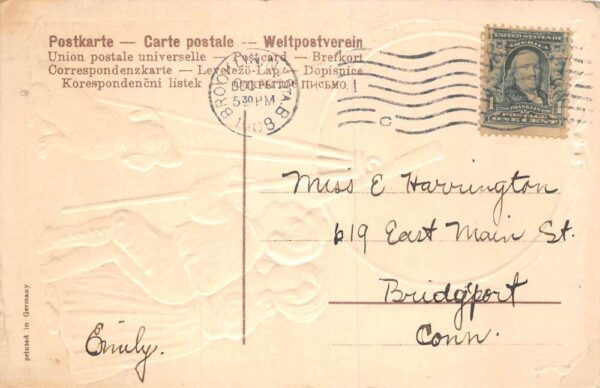 Postkarte — Carte postale — Weltpostverein
Union postale universelle — Postcard — Brefkort
Correspondenzkarte — Levelező-Lap — Dopisnice
Korespondenční lístek — ОТКРЫТОЕ ПИСЬМО.
BROOKLYN, STA. B
530 PM
1908
C
UNITED STATES OF
AMERICA
1
FRANKLIN
POSTAGE
ONE CENT
Miss E Harrington
619 East Main St.
Bridgeport
Conn.
Emily.
printed in Germany